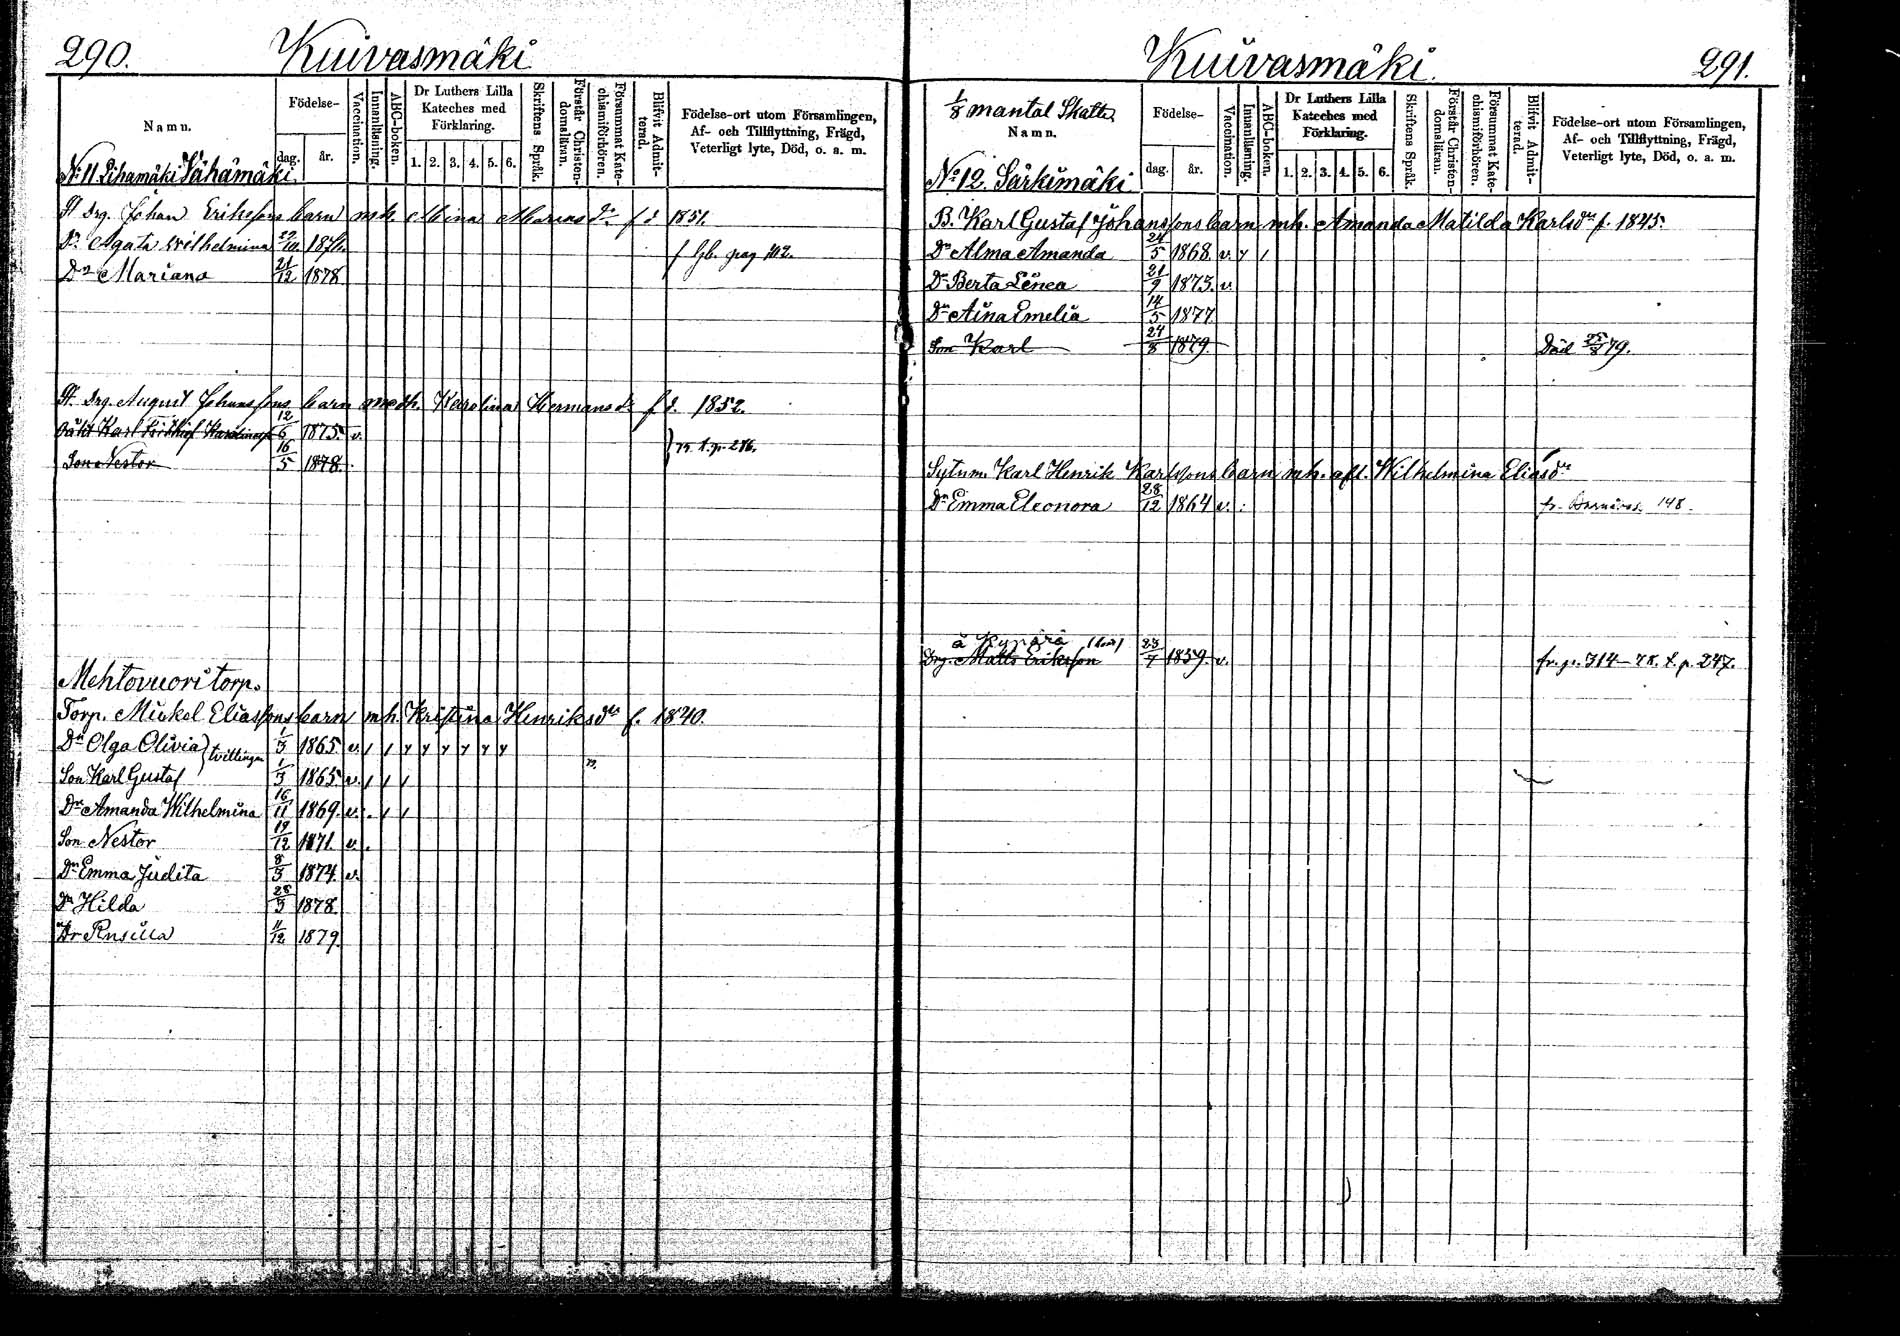 290. Kuivasmäki
Namn.
Födelse-
dag. år.
Vaccination.
Innanläsning.
ABC-boken.
Dr Luthers Lilla Kateches med Förklaring.
1. 2. 3. 4. 5. 6.
Skriftens Språk.
Förstår Christendomsläran.
Försummat Katechismiförhören.
Blifvit Admitterad.
Födelse-ort utom Församlingen, Af- och Tillflyttning, Frägd, Veterligt lyte, Död, o. a. m.
No 11 Pihamäki Vähämäki
Drg. Johan Erikssons barn mh. Mina f d 1851.
Dr Agata Wilhelmina 187
Dr Mariana 21/12 1878
Drg. August Johanssons barn med h. Karolina Hermansdr f d. 1852.
Karl 12/6 1875. v.
Son Nestor 16/5 1878.
Mehtovuori torp.
Torp. Mickel Eliassons barn mh. Kristina Henriksdr f. 1840.
Dr Olga Olivia } tvillingar 1/3 1865. v. / / y y y y y y
Son Karl Gustaf 1/3 1865. v. / / /
Dr Amanda Wilhelmina 16/11 1869. v. . / /
Son Nestor 19/12 1871. v. .
Dr Emma Judita 8/3 1874. v.
Dr Hilda 28/3 1878
Dr 11/12 1879.
Kuivasmäki. 291.
1/8 mantal Skatte
Namn.
Födelse-
dag. år.
Vaccination.
Innanläsning.
ABC-boken.
Dr Luthers Lilla Kateches med Förklaring.
1. 2. 3. 4. 5. 6.
Skriftens Språk.
Förstår Christendomsläran.
Försummat Katechismiförhören.
Blifvit Admitterad.
Födelse-ort utom Församlingen, Af- och Tillflyttning, Frägd, Veterligt lyte, Död, o. a. m.
No 12. Särkimäki
B. Karl Gustaf Johanssons barn mh. Amanda Matilda Karlsdr f. 1845.
Dr Alma Amanda 24/5 1868. v. y /
Dr Berta Linea 21/9 1873. v.
Dr Aina Emelia 14/5 1877
Son Karl 24/8 1879. Död 25/8 79.
Sytnm. Karl Henrik Karlssons barn mh. afl. Wilhelmina Eliasdr
Dr Emma Eleonora 28/12 1864 v. : 148.
Drg. Matts Eriksson 23/7 1859. v. fr. p. 314-78. t. p. 247.